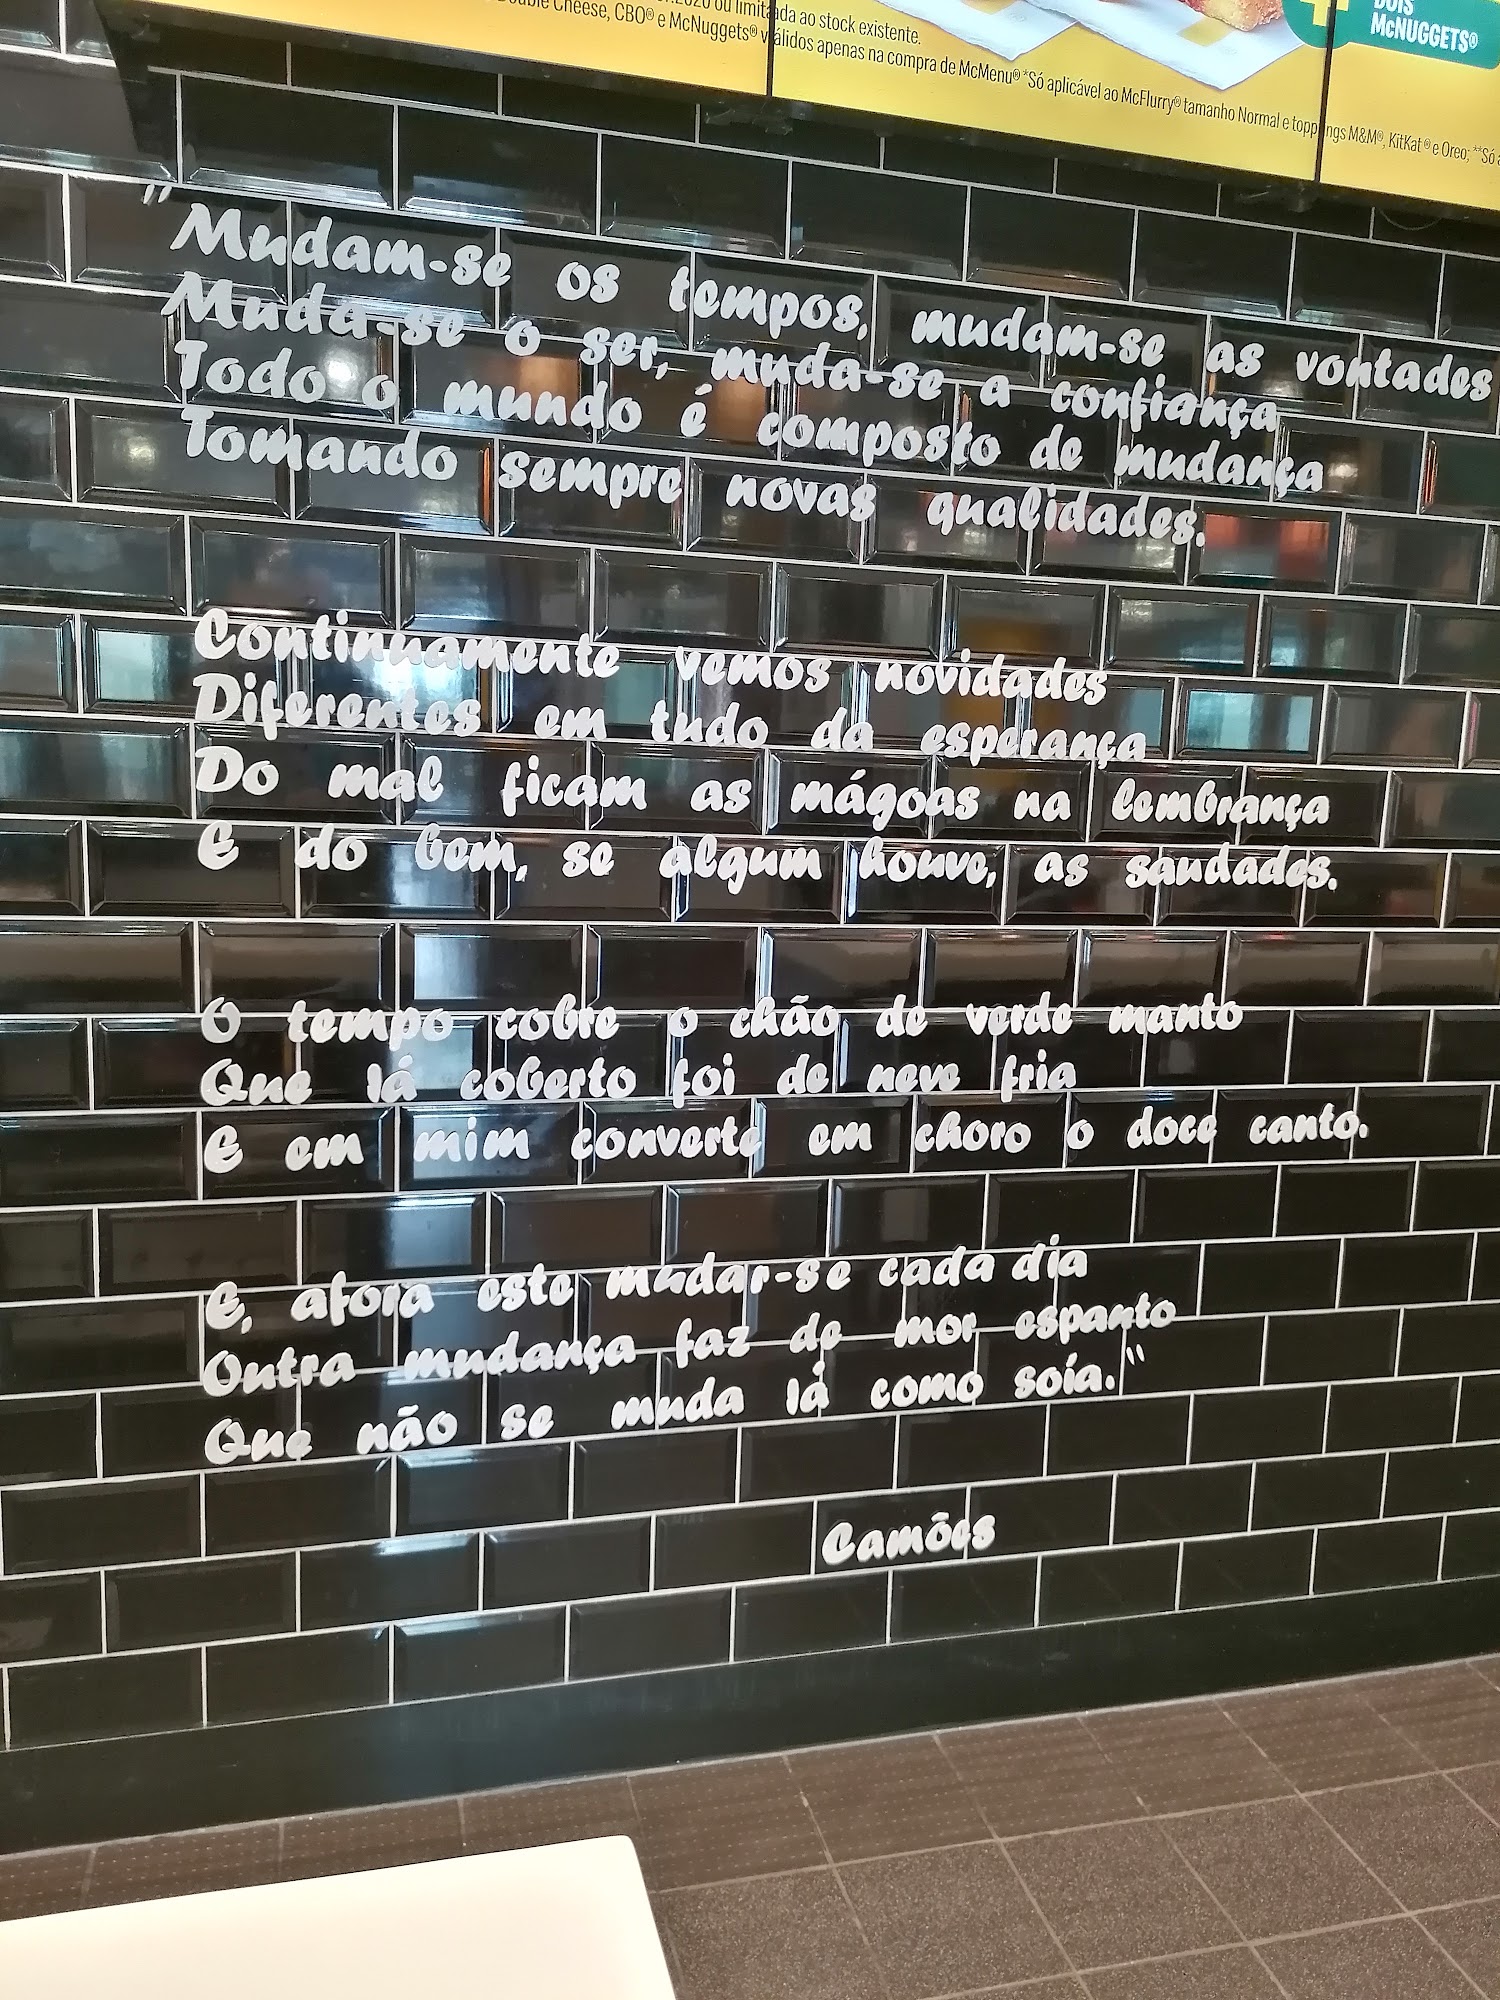 .2020 ou limitada ao stock existente.
Double Cheese, CBO® e McNuggets® válidos apenas na compra de McMenu® *Só aplicável ao McFlurry® tamanho Normal e toppings M&M®, KitKat® e Oreo; **Só
DOIS
McNUGGETS®
"Mudam-se os tempos, mudam-se as vontades
Muda-se o ser, muda-se a confiança
Todo o mundo é composto de mudança
Tomando sempre novas qualidades.
Continuamente vemos novidades
Diferentes em tudo da esperança
Do mal ficam as mágoas na lembrança
E do bem, se algum houve, as saudades.
O tempo cobre o chão de verde manto
Que lá coberto foi de neve fria
E em mim converte em choro o doce canto.
E, afora este mudar-se cada dia
Outra mudança faz de mor espanto
Que não se muda lá como soía."
Camões